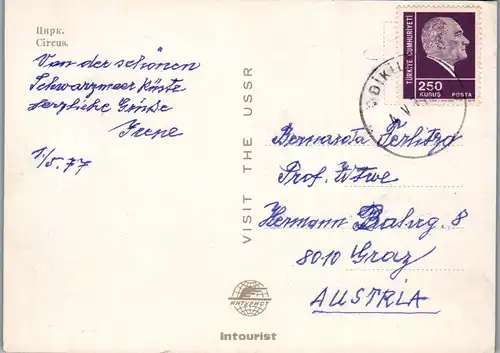 Цирк.
Circus.
Von der schönen
Schwarzmeer Küste
herzliche Grüße
Irene
1/5.77
VISIT THE USSR
TÜRKİYE CUMHURİYETİ
250
KURUŞ POSTA
DİKİL
Bernarda Terlitza
Prof. Witwe
Hermann Bahrg. 8
8010 Graz
AUSTRIA
ИНТУРИСТ
Intourist